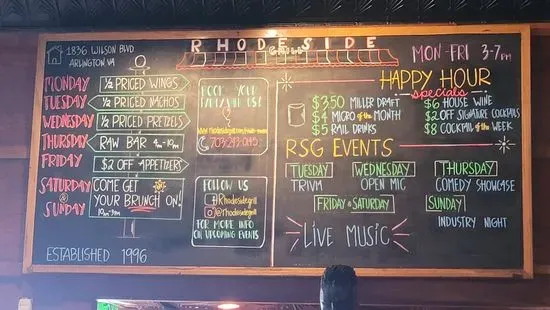 1836 WILSON BLVD.
ARLINGTON, VA
RHODESIDE
MONDAY ½ PRICED WINGS
TUESDAY ½ PRICED NACHOS
WEDNESDAY ½ PRICED PRETZELS
THURSDAY RAW BAR 4pm-10pm
FRIDAY $2 OFF APPETIZERS
SATURDAY
&
SUNDAY
COME GET
YOUR BRUNCH ON!
ESTABLISHED 1996
BOOK YOUR
PARTY WITH US!
703-243-0145
FOLLOW US
Rhodesidegrill
@rhodesidegrill
FOR MORE INFO
ON UPCOMING EVENTS
MON-FRI 3-7pm
HAPPY HOUR
specials
$3.50 MILLER DRAFT
$4 MICRO of the MONTH
$5 RAIL DRINKS
$6 HOUSE WINE
$2 OFF SIGNATURE COCKTAILS
$8 COCKTAIL of the WEEK
RSG EVENTS
TUESDAY
TRIVIA
WEDNESDAY
OPEN MIC
THURSDAY
COMEDY SHOWCASE
FRIDAY & SATURDAY
LIVE MUSIC
SUNDAY
INDUSTRY NIGHT